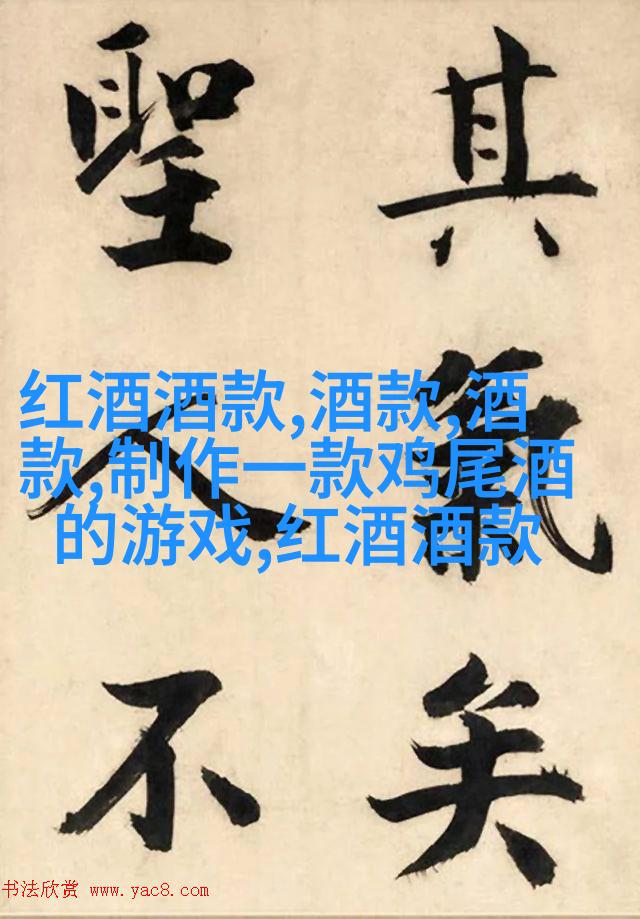 其氣矣
聖人不
红酒酒款,酒款,酒
款,制作一款鸡尾酒
的游戏,红酒酒款
书法欣赏 www.yac8.com